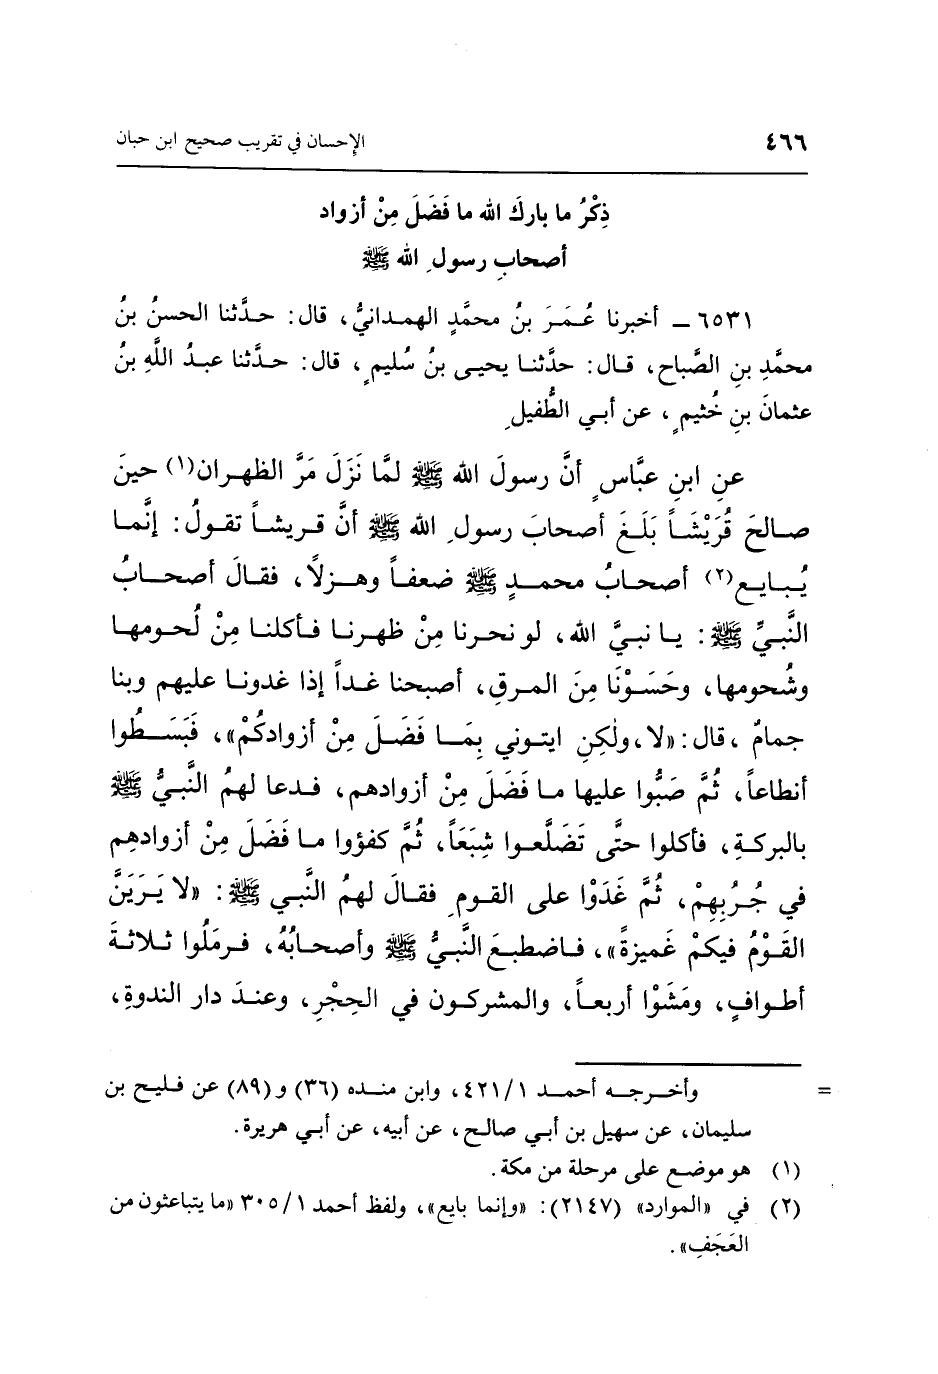 ٤٦٦
الإحسان في تقريب صحيح ابن حبان
ذِكْرُ ما بارَكَ الله ما فَضَلَ مِنْ أزواد
أصحابِ رسولِ الله ﷺ
٦٥٣١ ـ أخبرنا عُمَرَ بنُ محمَّدٍ الهمدانيُّ، قال: حدَّثنا الحسنُ بنُ
محمَّدِ بنِ الصَّباح، قال: حدَّثنا يحيى بنُ سُليمٍ، قال: حدَّثنا عبدُ اللَّهِ بنُ
عثمانَ بنِ خُثيمٍ، عن أبي الطُّفيلِ
عنِ ابنِ عبَّاسٍ أنَّ رسولَ الله ﷺ لمَّا نَزَلَ مَرَّ الظهران(١) حينَ
صالحَ قُرَيْشَاً بَلَغَ أصحابَ رسولِ الله ﷺ أنَّ قريشاً تقولُ: إنَّما
يُبايع(٢) أصحابُ محمدٍ ﷺ ضعفاً وهزلاً، فقالَ أصحابُ
النَّبيِّ ﷺ: يا نبيَّ الله، لو نحرنا مِنْ ظهرنا فأكلنا مِنْ لُحومها
وشُحومها، وحَسَوْنَا مِنَ المرقِ، أصبحنا غداً إذا غدونا عليهم وبنا
جمامٌ، قال: «لا، ولكِنِ ايتوني بِمَا فَضَلَ مِنْ أزوادكُمْ»، فَبَسَطُوا
أنطاعاً، ثُمَّ صَبُّوا عليها ما فَضَلَ مِنْ أزوادهم، فدعا لهمُ النَّبيُّ ﷺ
بالبركةِ، فأكلوا حتَّى تَضَلَّعوا شِبَعَاً، ثُمَّ كفؤوا ما فَضَلَ مِنْ أزوادهِم
في جُرُبِهِمْ، ثُمَّ غَدَوْا على القومِ فقالَ لهمُ النَّبي ﷺ: «لا يَرَيَنَّ
القَوْمُ فيكمْ غَميزةً»، فاضطبعَ النَّبيُّ ﷺ وأصحابُهُ، فرمَلُوا ثلاثةَ
أطوافٍ، ومَشَوْا أربعاً، والمشركون في الحِجْرِ، وعندَ دار الندوةِ،
= وأخرجه أحمد ٤٢١/١، وابن منده (٣٦) و(٨٩) عن فليح بن
سليمان، عن سهيل بن أبي صالح، عن أبيه، عن أبي هريرة.
(١) هو موضع على مرحلة من مكة.
(٢) في «الموارد» (٢١٤٧): «وإنما بايع»، ولفظ أحمد ٣٠٥/١ «ما يتباعثون من
العَجَفِ».